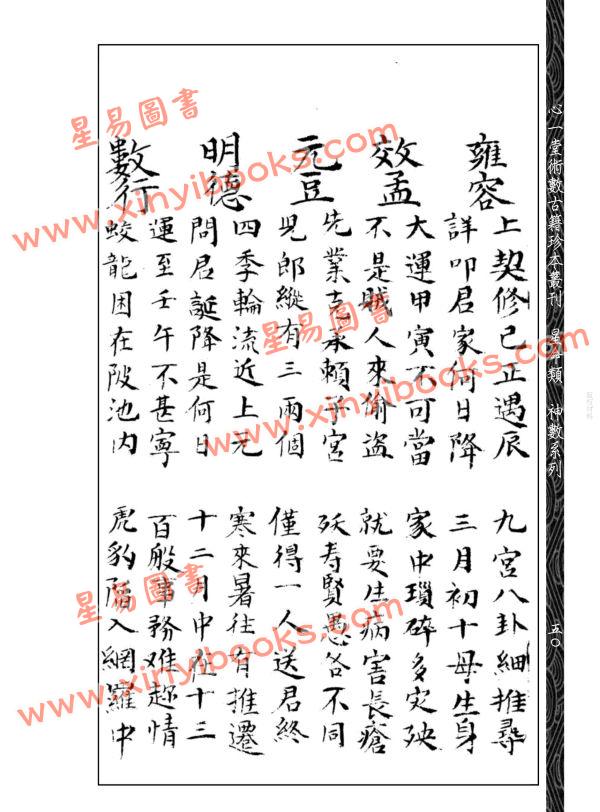 心一堂術數古籍珍本叢刊 星命類 神數系列
五〇
雍容
上契修己正遇辰 九宮八卦細推尋
詳叩君家何日降 三月初十母生身
效孟
大運甲寅不可當 家中瑣碎多災殃
不是賊人來偷盜 就要生病害長瘡
元豆
先業克承賴子宮 殀寿賢愚各不同
児郎縱有三兩個 僅得一人送君終
明德
四季輪流近上元 寒來暑往有推遷
問君誕降是何日 十二月中在十三
數行
運至壬午不甚寧 百般事務难趂情
蛟龍困在陂池内 虎豹陷入網羅中
星易圖書
www.xinyibooks.com
星易圖書
www.xinyibooks.com
星易圖書
www.xinyibooks.com